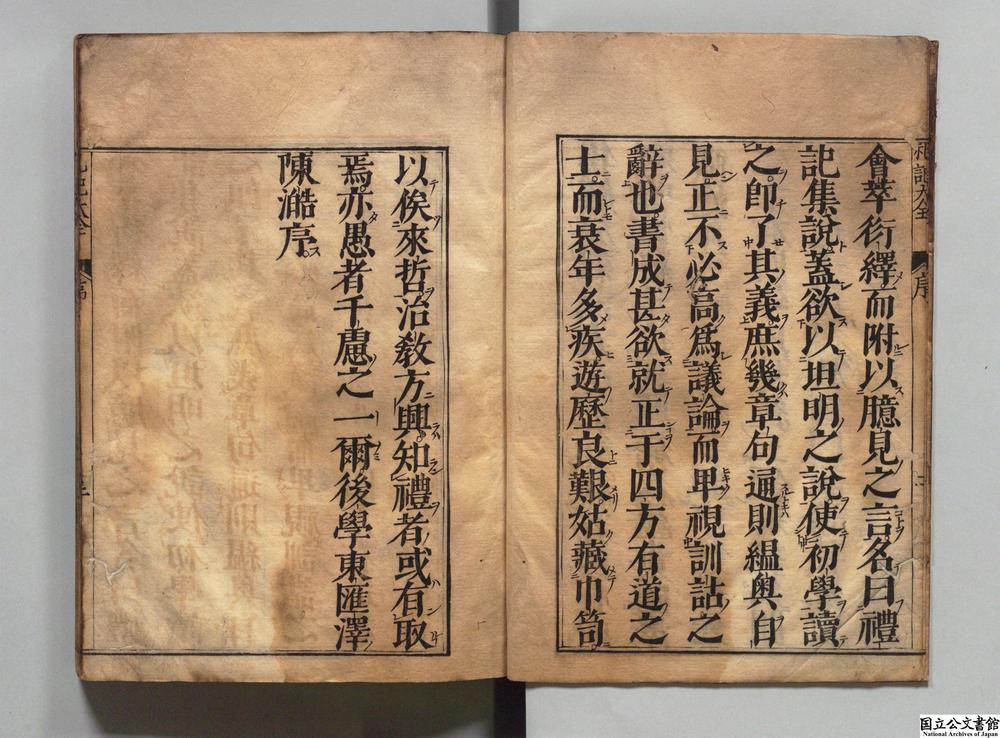 會萃衍繹而附以臆見之言名曰禮
記集說蓋欲以坦明之說使初學讀
之即了其義庶幾章句通則縕奥自
見正不必高爲議論而卑視訓詁之
辭也書成甚欲就正于四方有道之
士而衰年多疾遊歷良艱姑藏巾笥
以俟來哲治教方興知禮者或有取
焉亦愚者千慮之一爾後學東匯澤
陳澔序
国立公文書館
National Archives of Japan